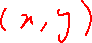 (x, y)